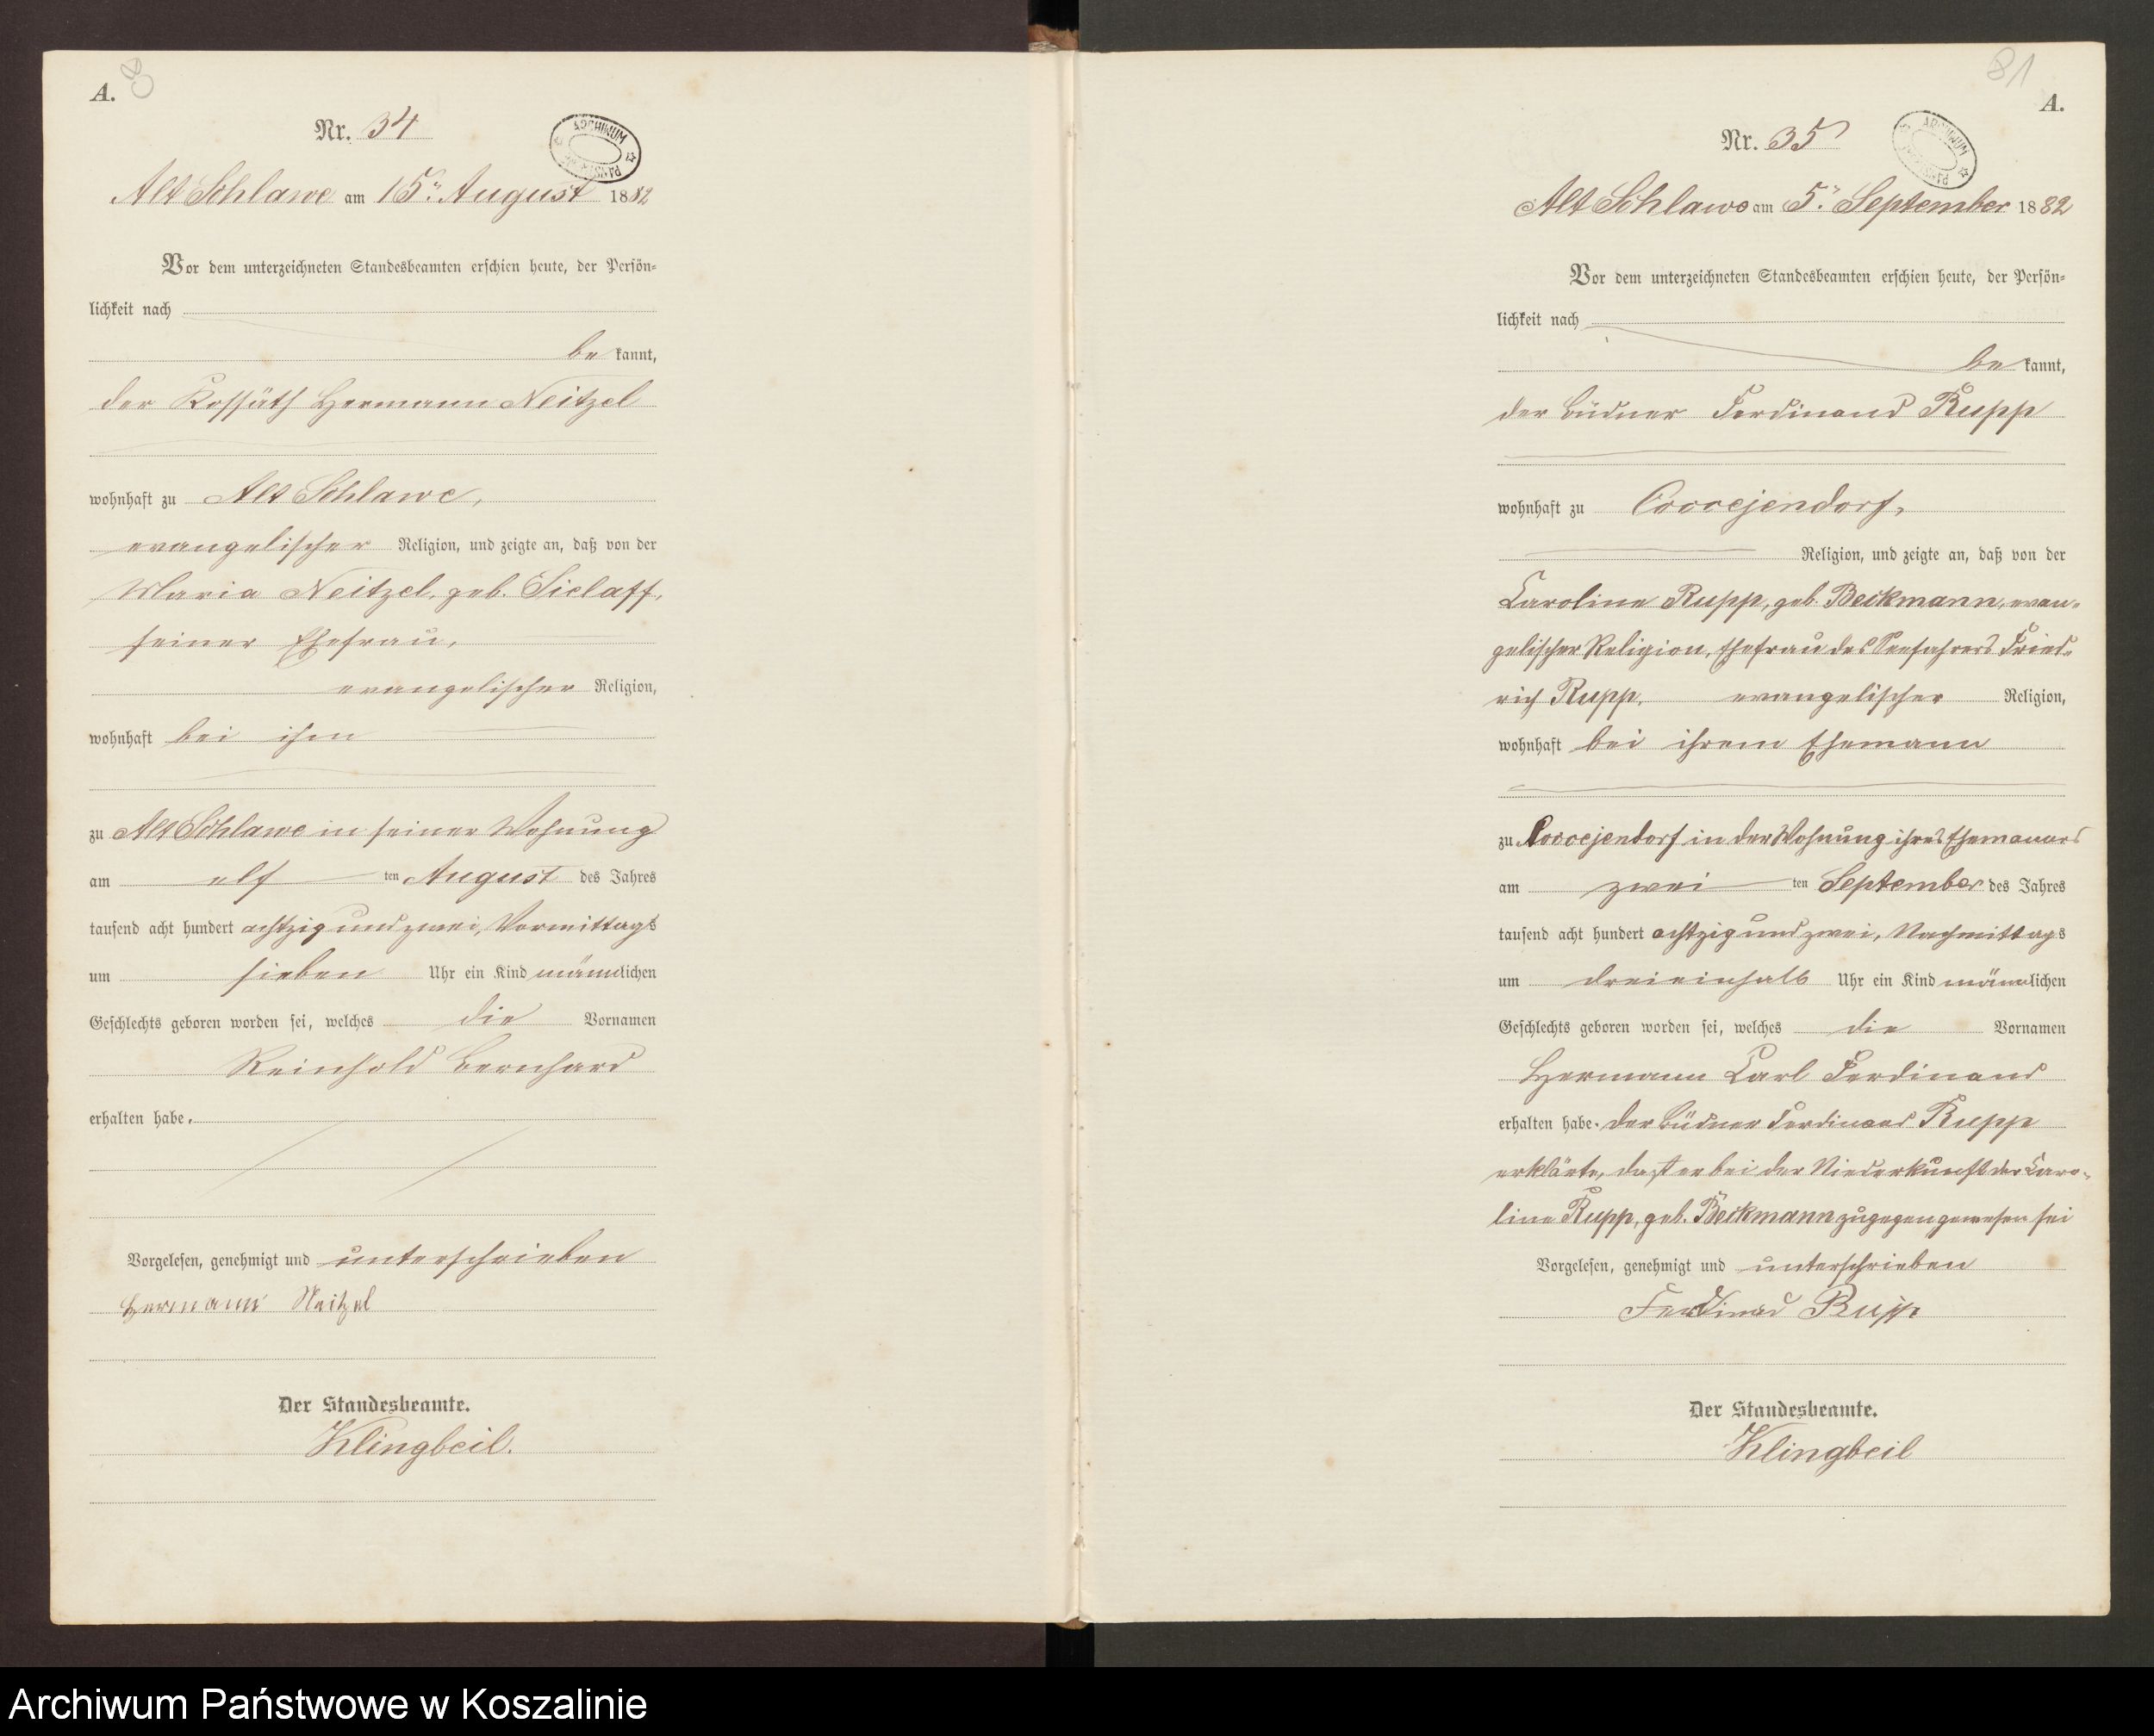 A.
8
Nr. 34
ARCHIWUM
PAŃSTWOWE
Alt Schlawe am 15ᵗ August 1882
Vor dem unterzeichneten Standesbeamten erschien heute, der Persön=
lichkeit nach
be kannt,
der Kossäth Hermann Neitzel
wohnhaft zu Alt Schlawe,
evangelischer Religion, und zeigte an, daß von der
Maria Neitzel, geb. Sielaff,
seiner Ehefrau,
evangelischer Religion,
wohnhaft bei ihm
zu Alt Schlawe in seiner Wohnung
am elf ten August des Jahres
tausend acht hundert achtzig und zwei, Vormittags
um sieben Uhr ein Kind männlichen
Geschlechts geboren worden sei, welches die Vornamen
Reinhold Bernhard
erhalten habe.
Vorgelesen, genehmigt und unterschrieben
Hermann Neitzel
Der Standesbeamte.
Klingbeil.
81
A.
Nr. 35
ARCHIWUM
Alt Schlawe am 5ᵗ September 1882
Vor dem unterzeichneten Standesbeamten erschien heute, der Persön=
lichkeit nach
be kannt,
der Büdner Ferdinand Rupp
wohnhaft zu Coccejendorf,
Religion, und zeigte an, daß von der
Caroline Rupp, geb. Beckmann, evan=
gelischer Religion, Ehefrau des Seefahrers Fried=
rich Rupp, evangelischer Religion,
wohnhaft bei ihrem Ehemann
zu Coccejendorf in der Wohnung ihres Ehemanns
am zwei ten September des Jahres
tausend acht hundert achtzig und zwei, Nachmittags
um dreieinhalb Uhr ein Kind männlichen
Geschlechts geboren worden sei, welches die Vornamen
Hermann Carl Ferdinand
erhalten habe. Der Büdner Ferdinand Rupp
erklärte, daß er bei der Niederkunft der Caro=
line Rupp, geb. Beckmann zugegen gewesen sei
Vorgelesen, genehmigt und unterschrieben
Ferdinand Rupp
Der Standesbeamte.
Klingbeil
Archiwum Państwowe w Koszalinie